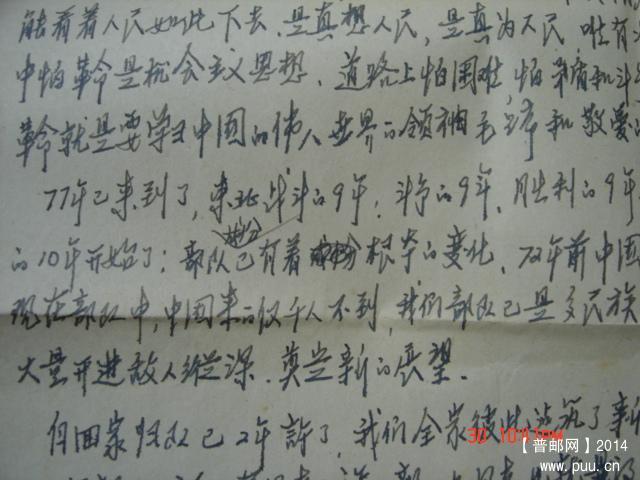 能看着人民如此下去，是真想人民，是真为人民，唯有
中怕革命是机会主义思想，道路上怕困难，怕矛盾和斗
革命就是要学习中国的伟人世界的领袖毛主席和敬爱
77年已来到了，东北战斗的9年，斗争的9年，胜利的9年
的10年开始了；部队已有着根本的变化，72年前中国
现在部队中，中国来的仅千人不到，我们部队已是多民族
大量开进敌人纵深，奠定新的展望。
自回家归队已2年许了，我们全家彼此
了新
【普邮网】2014
www.puu.cn